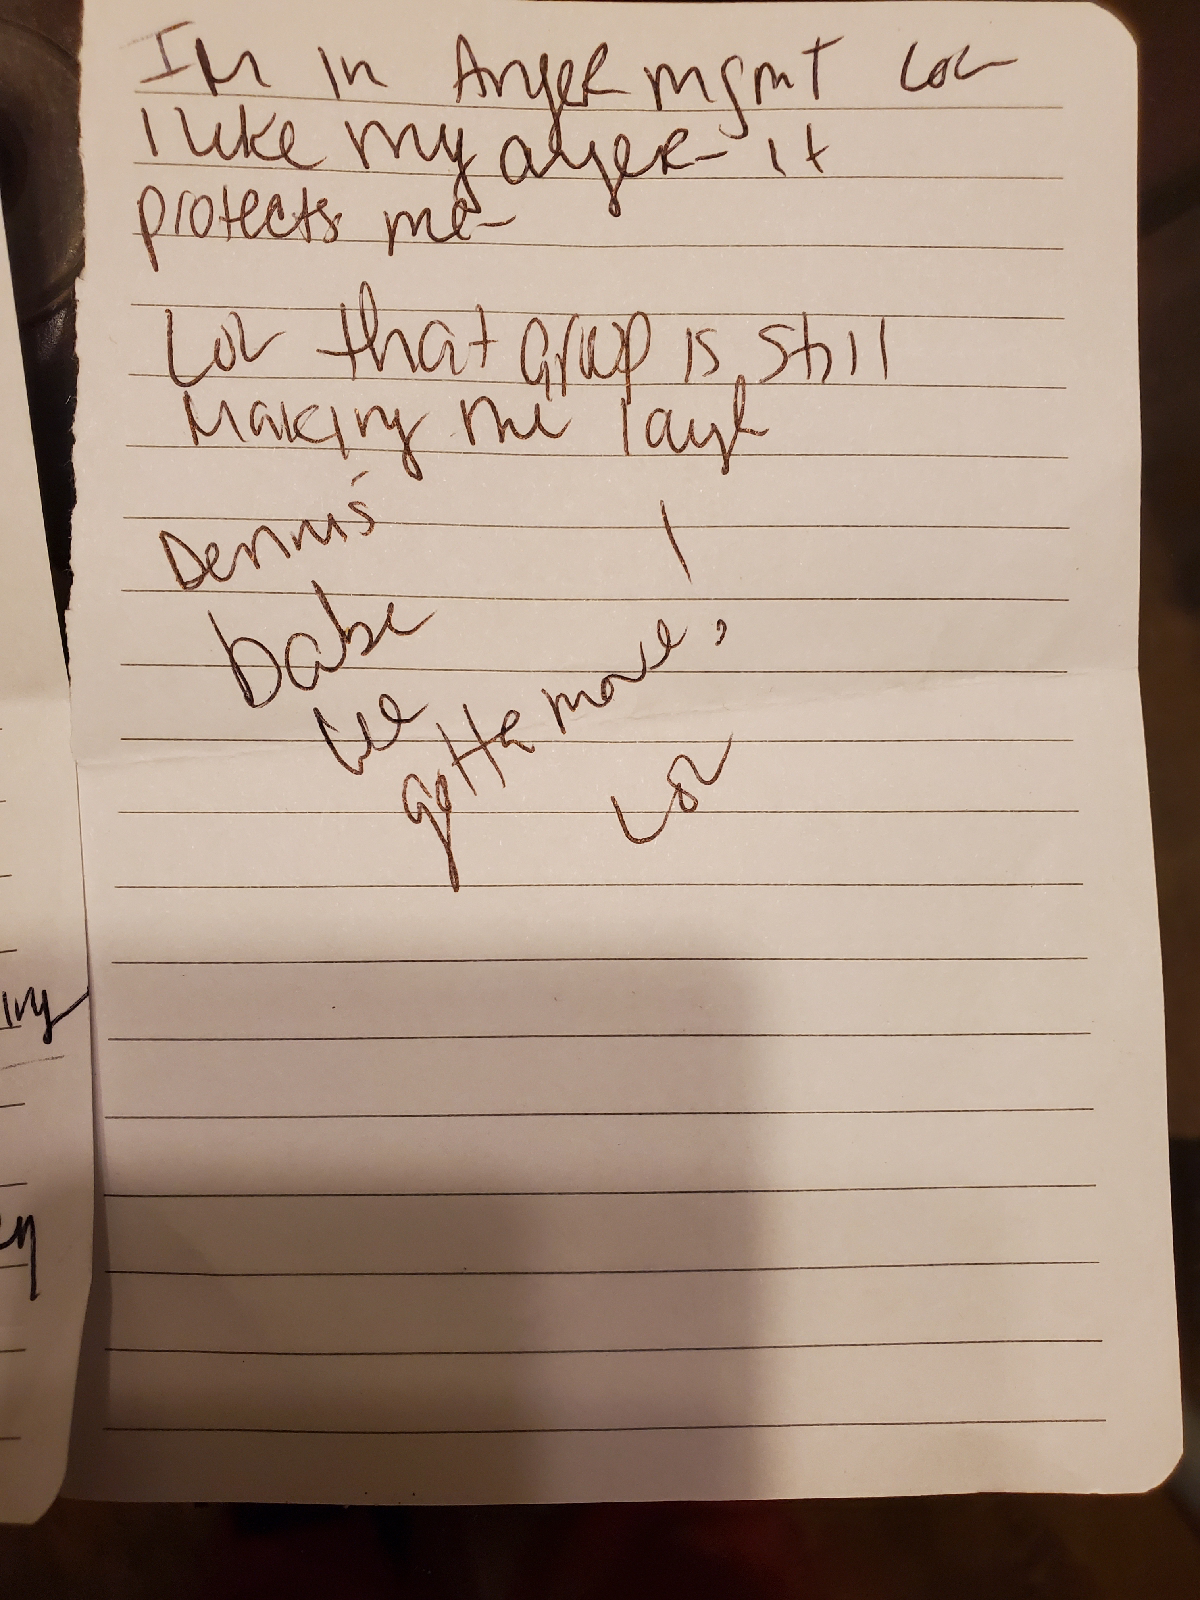 IM In Anger mgmt LOL
I like my anger - it
protects me -
LOL that group is still
Making me laugh
Dennis
babe
we
gotta move,
LOL
iny
en